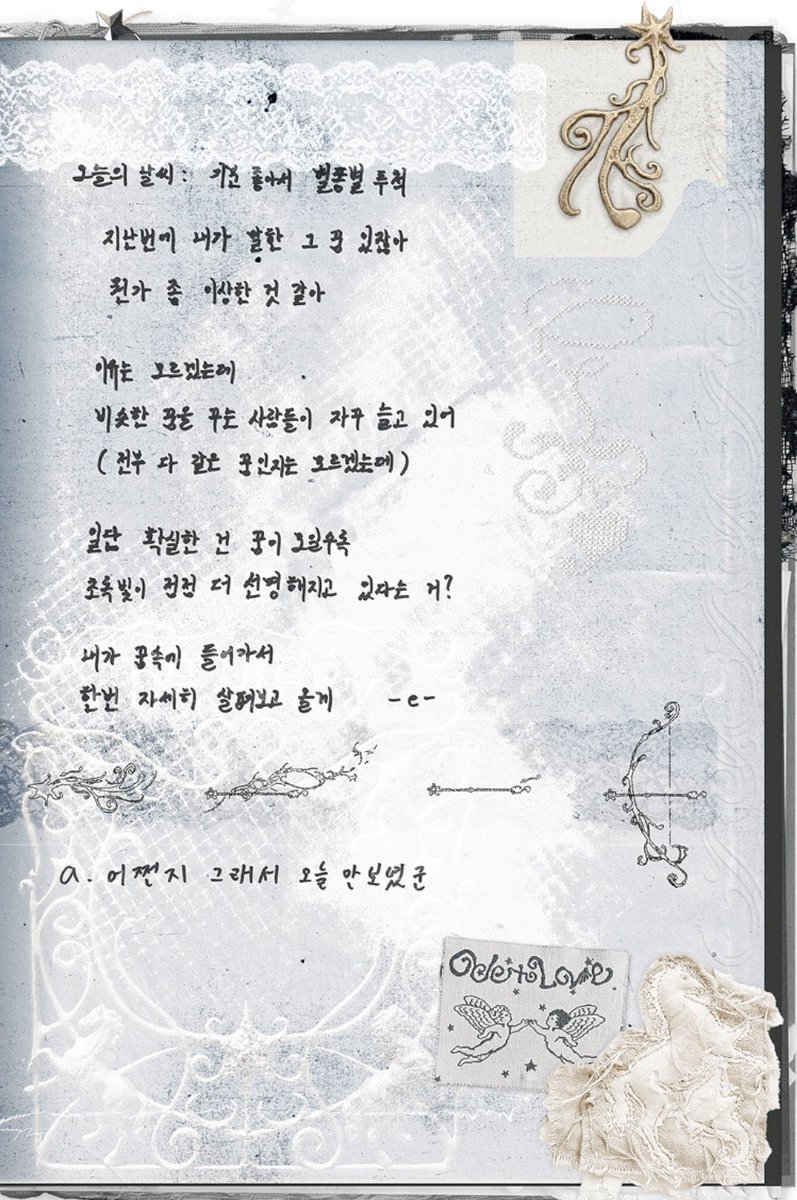 오늘의 날씨: 기분 좋아서 별똥별 투척
지난번에 내가 말한 그 꿈 있잖아
뭔가 좀 이상한 것 같아
이유는 모르겠는데
비슷한 꿈을 꾸는 사람들이 자꾸 늘고 있어
(전부 다 같은 꿈인지는 모르겠는데)
일단 확실한 건 꿈이 모일수록
초록빛이 점점 더 선명해지고 있다는 거?
내가 꿈속에 들어가서
한번 자세히 살펴보고 올게 -e-
a. 어쩐지 그래서 오늘 안보였군
OdeitoLove